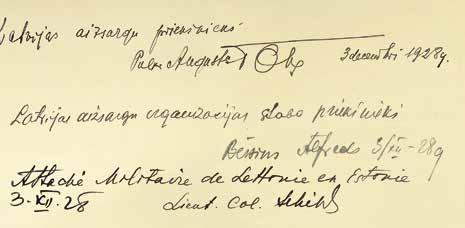 Latvijas aizsargu priekšnieks
August 3 decembri 1928g.
Latvijas aizsargu organizācijas štaba priekšnieks
Bērziņš Alfreds 3/XII-28g
Attaché Militaire de Lettonie en Estonie
3.XII.28 Lieut. Col.